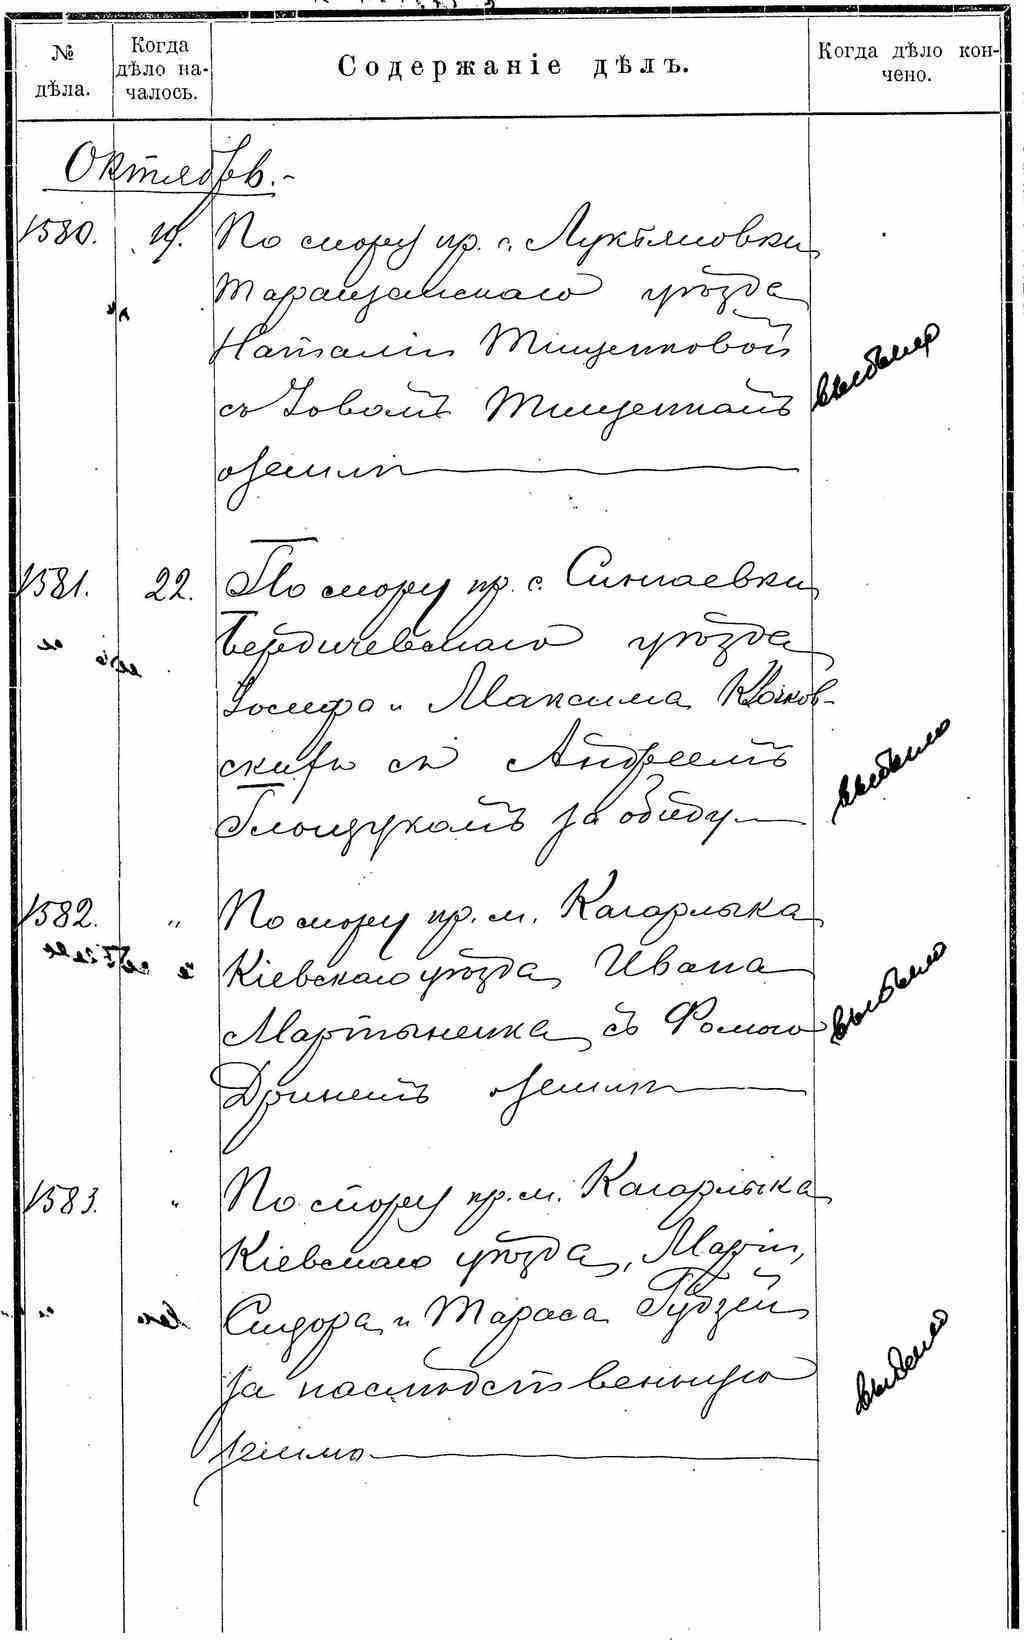 № дѣла.
Когда дѣло на-чалось.
Содержаніе дѣлъ.
Когда дѣло кон-чено.
Октябрь.
1580. 19. По спору кр. с. Лукьяновки
Таращанскаго уѣзда
Наталіи Тищенковой
съ Іовомъ Тищенкомъ
о земли
выбыло
1581. 22. По спору кр. с. Сингаевки
Бердичевскаго уѣзда
Іосифа и Максима Качков-
скихъ съ Андреемъ
Глощукомъ за обиду
выбыло
1582. " По спору кр. м. Кагарлыка
Кіевскаго уѣзда Ивана
Мартыненка съ Фомою
земли
выбыло
1583. " По спору кр. м. Кагарлыка
Кіевскаго уѣзда, Маріи,
Сидора и Тараса Гудзей
за наслѣдственную
землю
выбыло